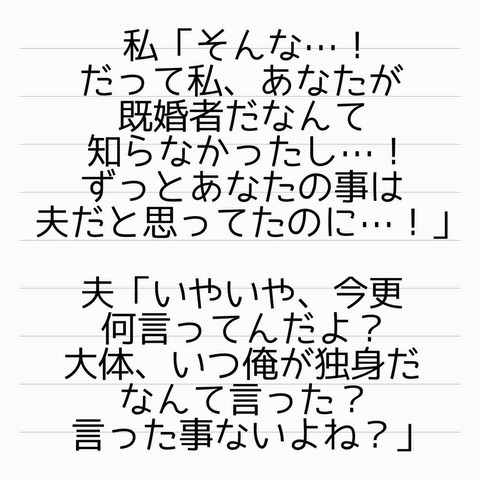 私「そんな…！
だって私、あなたが
既婚者だなんて
知らなかったし…！
ずっとあなたの事は
夫だと思ってたのに…！」
夫「いやいや、今更
何言ってんだよ？
大体、いつ俺が独身だ
なんて言った？
言った事ないよね？」